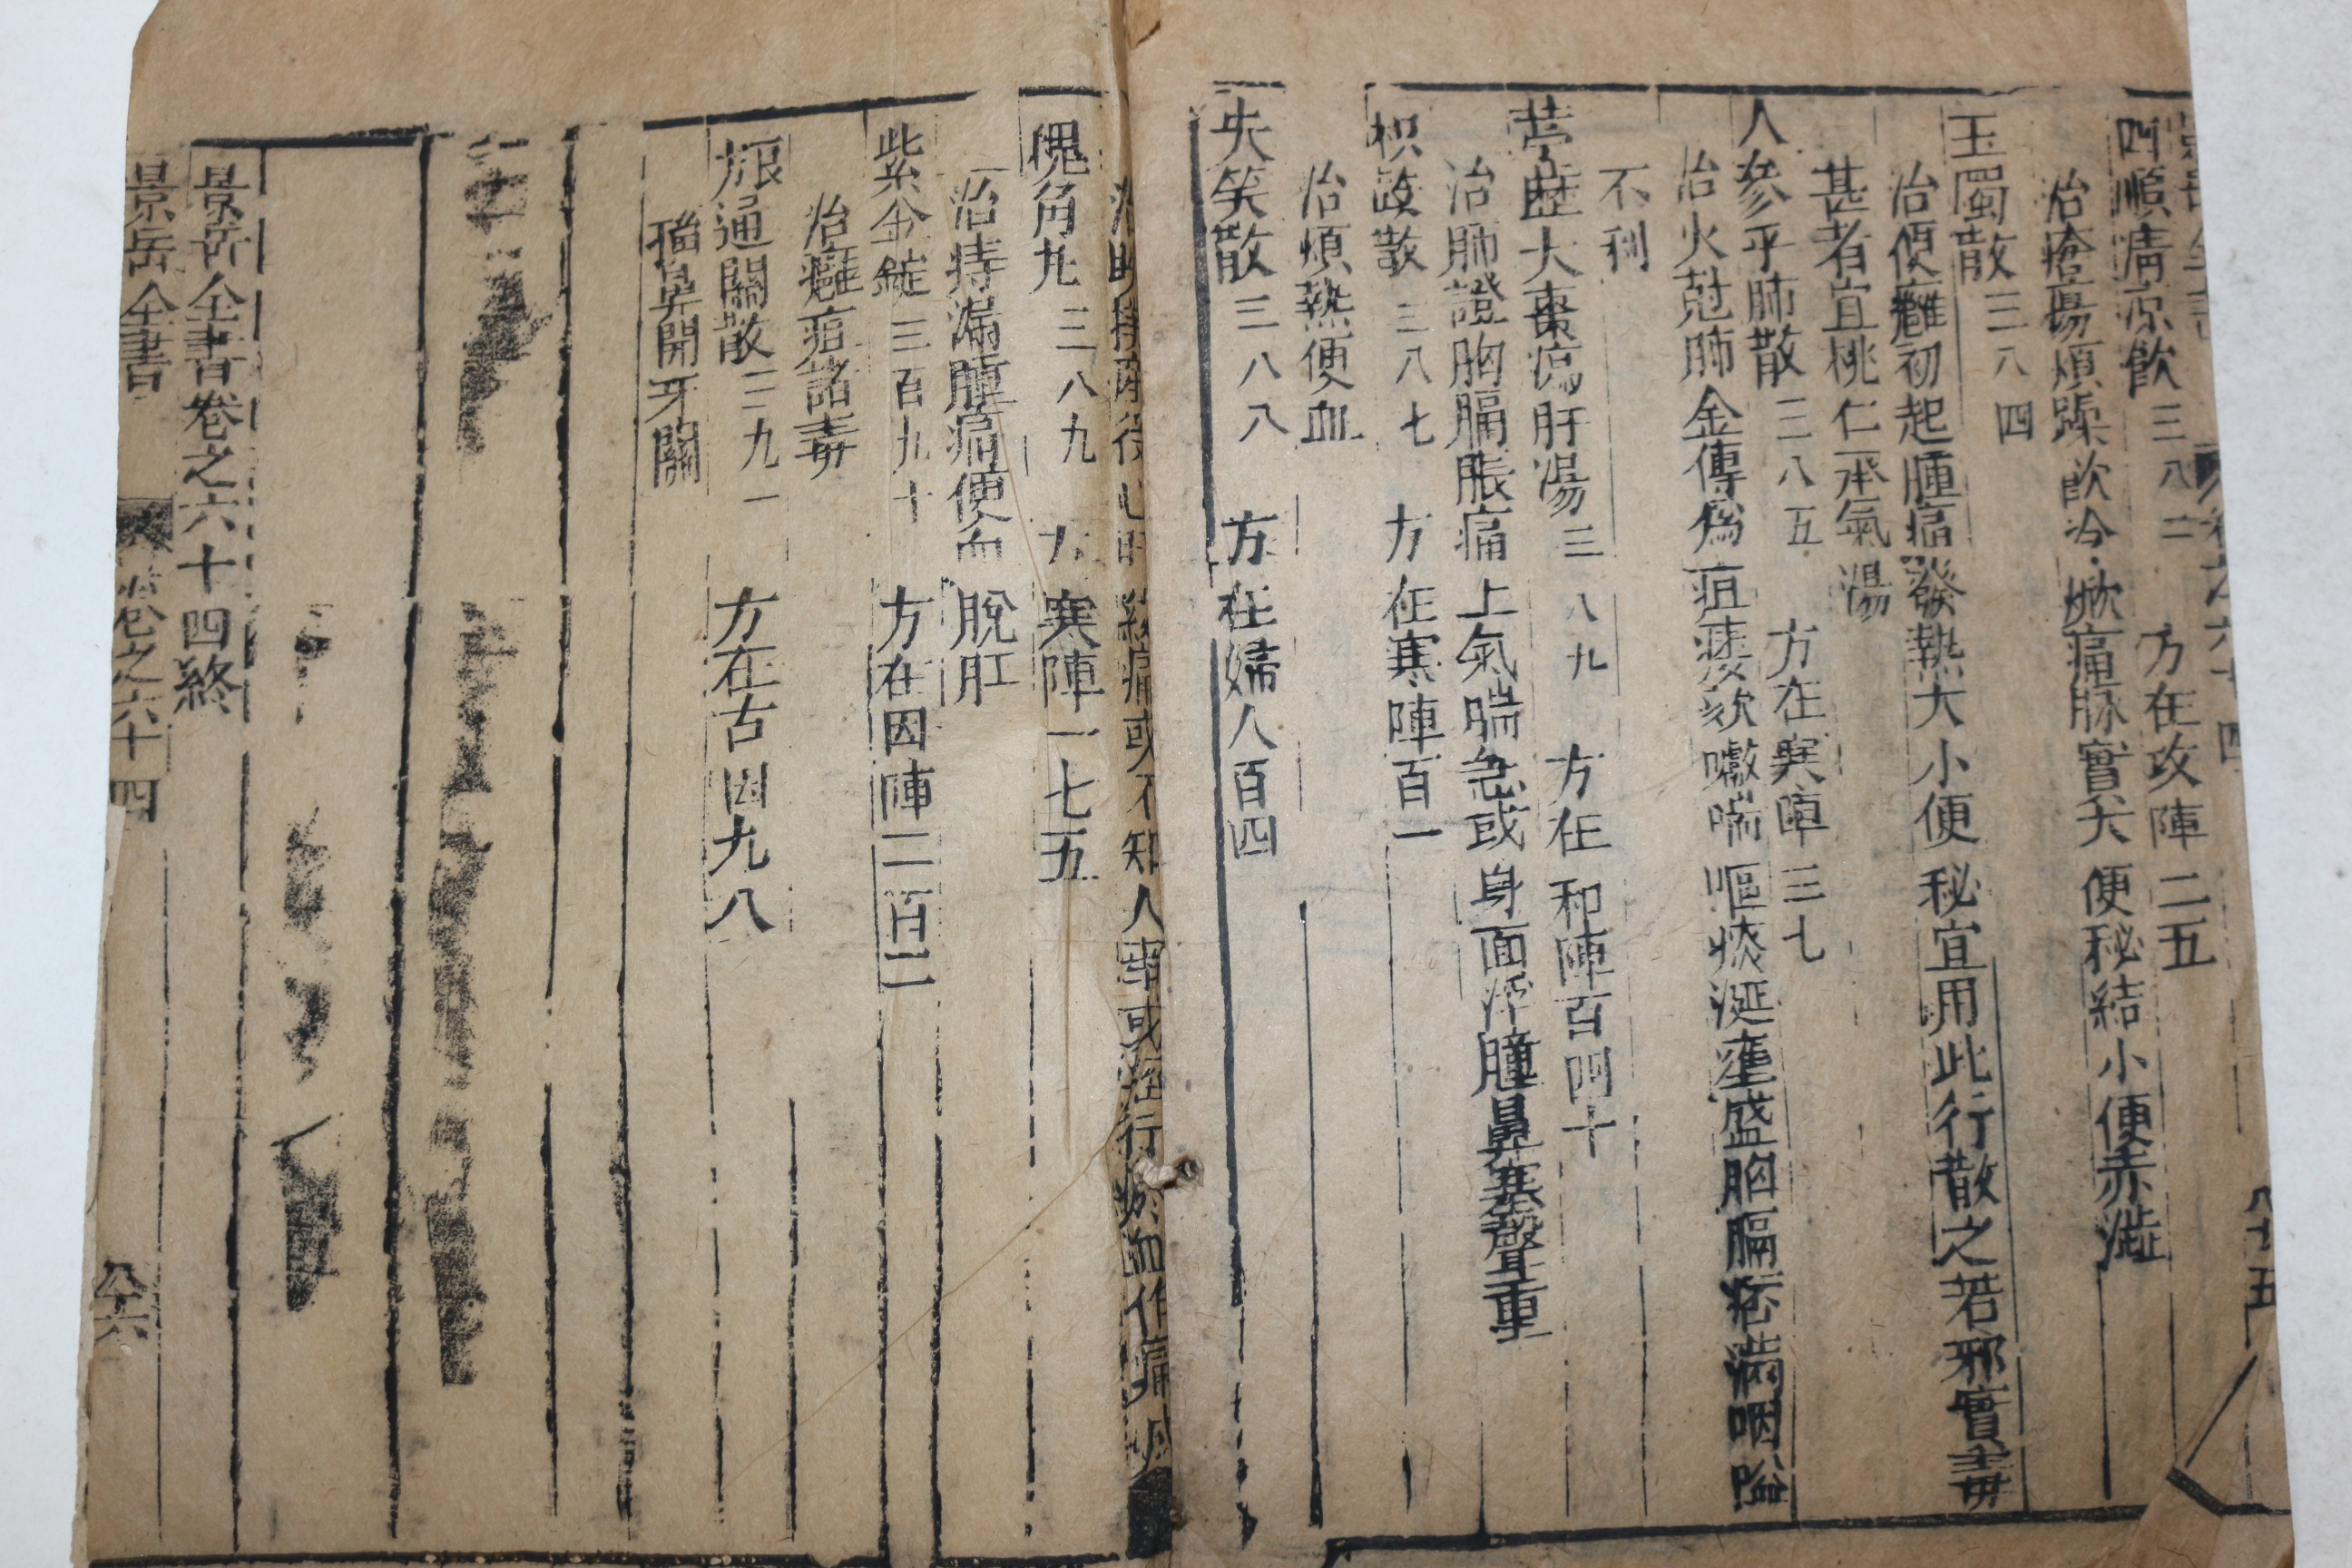 四順清凉飲三八三　方在攻陣二五
治瘡瘍煩躁飲冷焮痛脉實大便秘結小便赤澁
玉燭散三八四
治便癰初起腫痛發熱大小便秘宜用此行散之若邪實毒
甚者宜桃仁承氣湯
人參平肺散三八五　方在寒陣三七
治火尅肺金傳爲疽痿欬嗽喘嘔痰涎壅盛胸膈痞滿咽嗌
不利
葶藶大棗瀉肝湯三八九　方在和陣百四十
治肺證胸膈脹痛上氣喘急或身面浮腫鼻塞聲重
枳殼散三八七　方在寒陣百一
治煩熱便血
失笑散三八八　方在婦人百四
治 産後心 絞痛或不知人事或經行瘀血作痛成
槐角丸三八九　方寒陣一七五
治痔漏腫痛便血脫肛
紫金錠三百九十　方在因陣二百二
治癰疽諸毒
通關散三九一　方在古因九八
搐鼻開牙關
景岳全書卷之六十四終
景岳全書　卷之六十四　八六